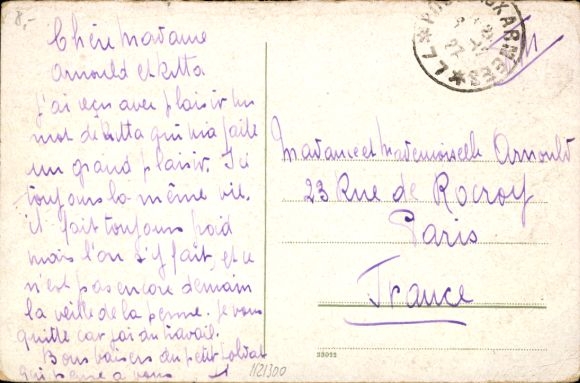 8,-
Chère Madame
Arnould et Ketta
j'ai reçu avec plaisir un
mot de Ketta qui m'a faite
un grand plaisir. Ici
toujours la même vie.
il fait toujours froid
mais l'on s'y fait, et ce
n'est pas encore demain
la veille de la perme. je vous
quitte car j'ai du travail.
Bons baisers du petit soldat
qui pense a vous
Madame et Mademoiselle Arnould
23 Rue de Rocroy
Paris
France
POSTE AUX ARMEES
77
33022
1121300